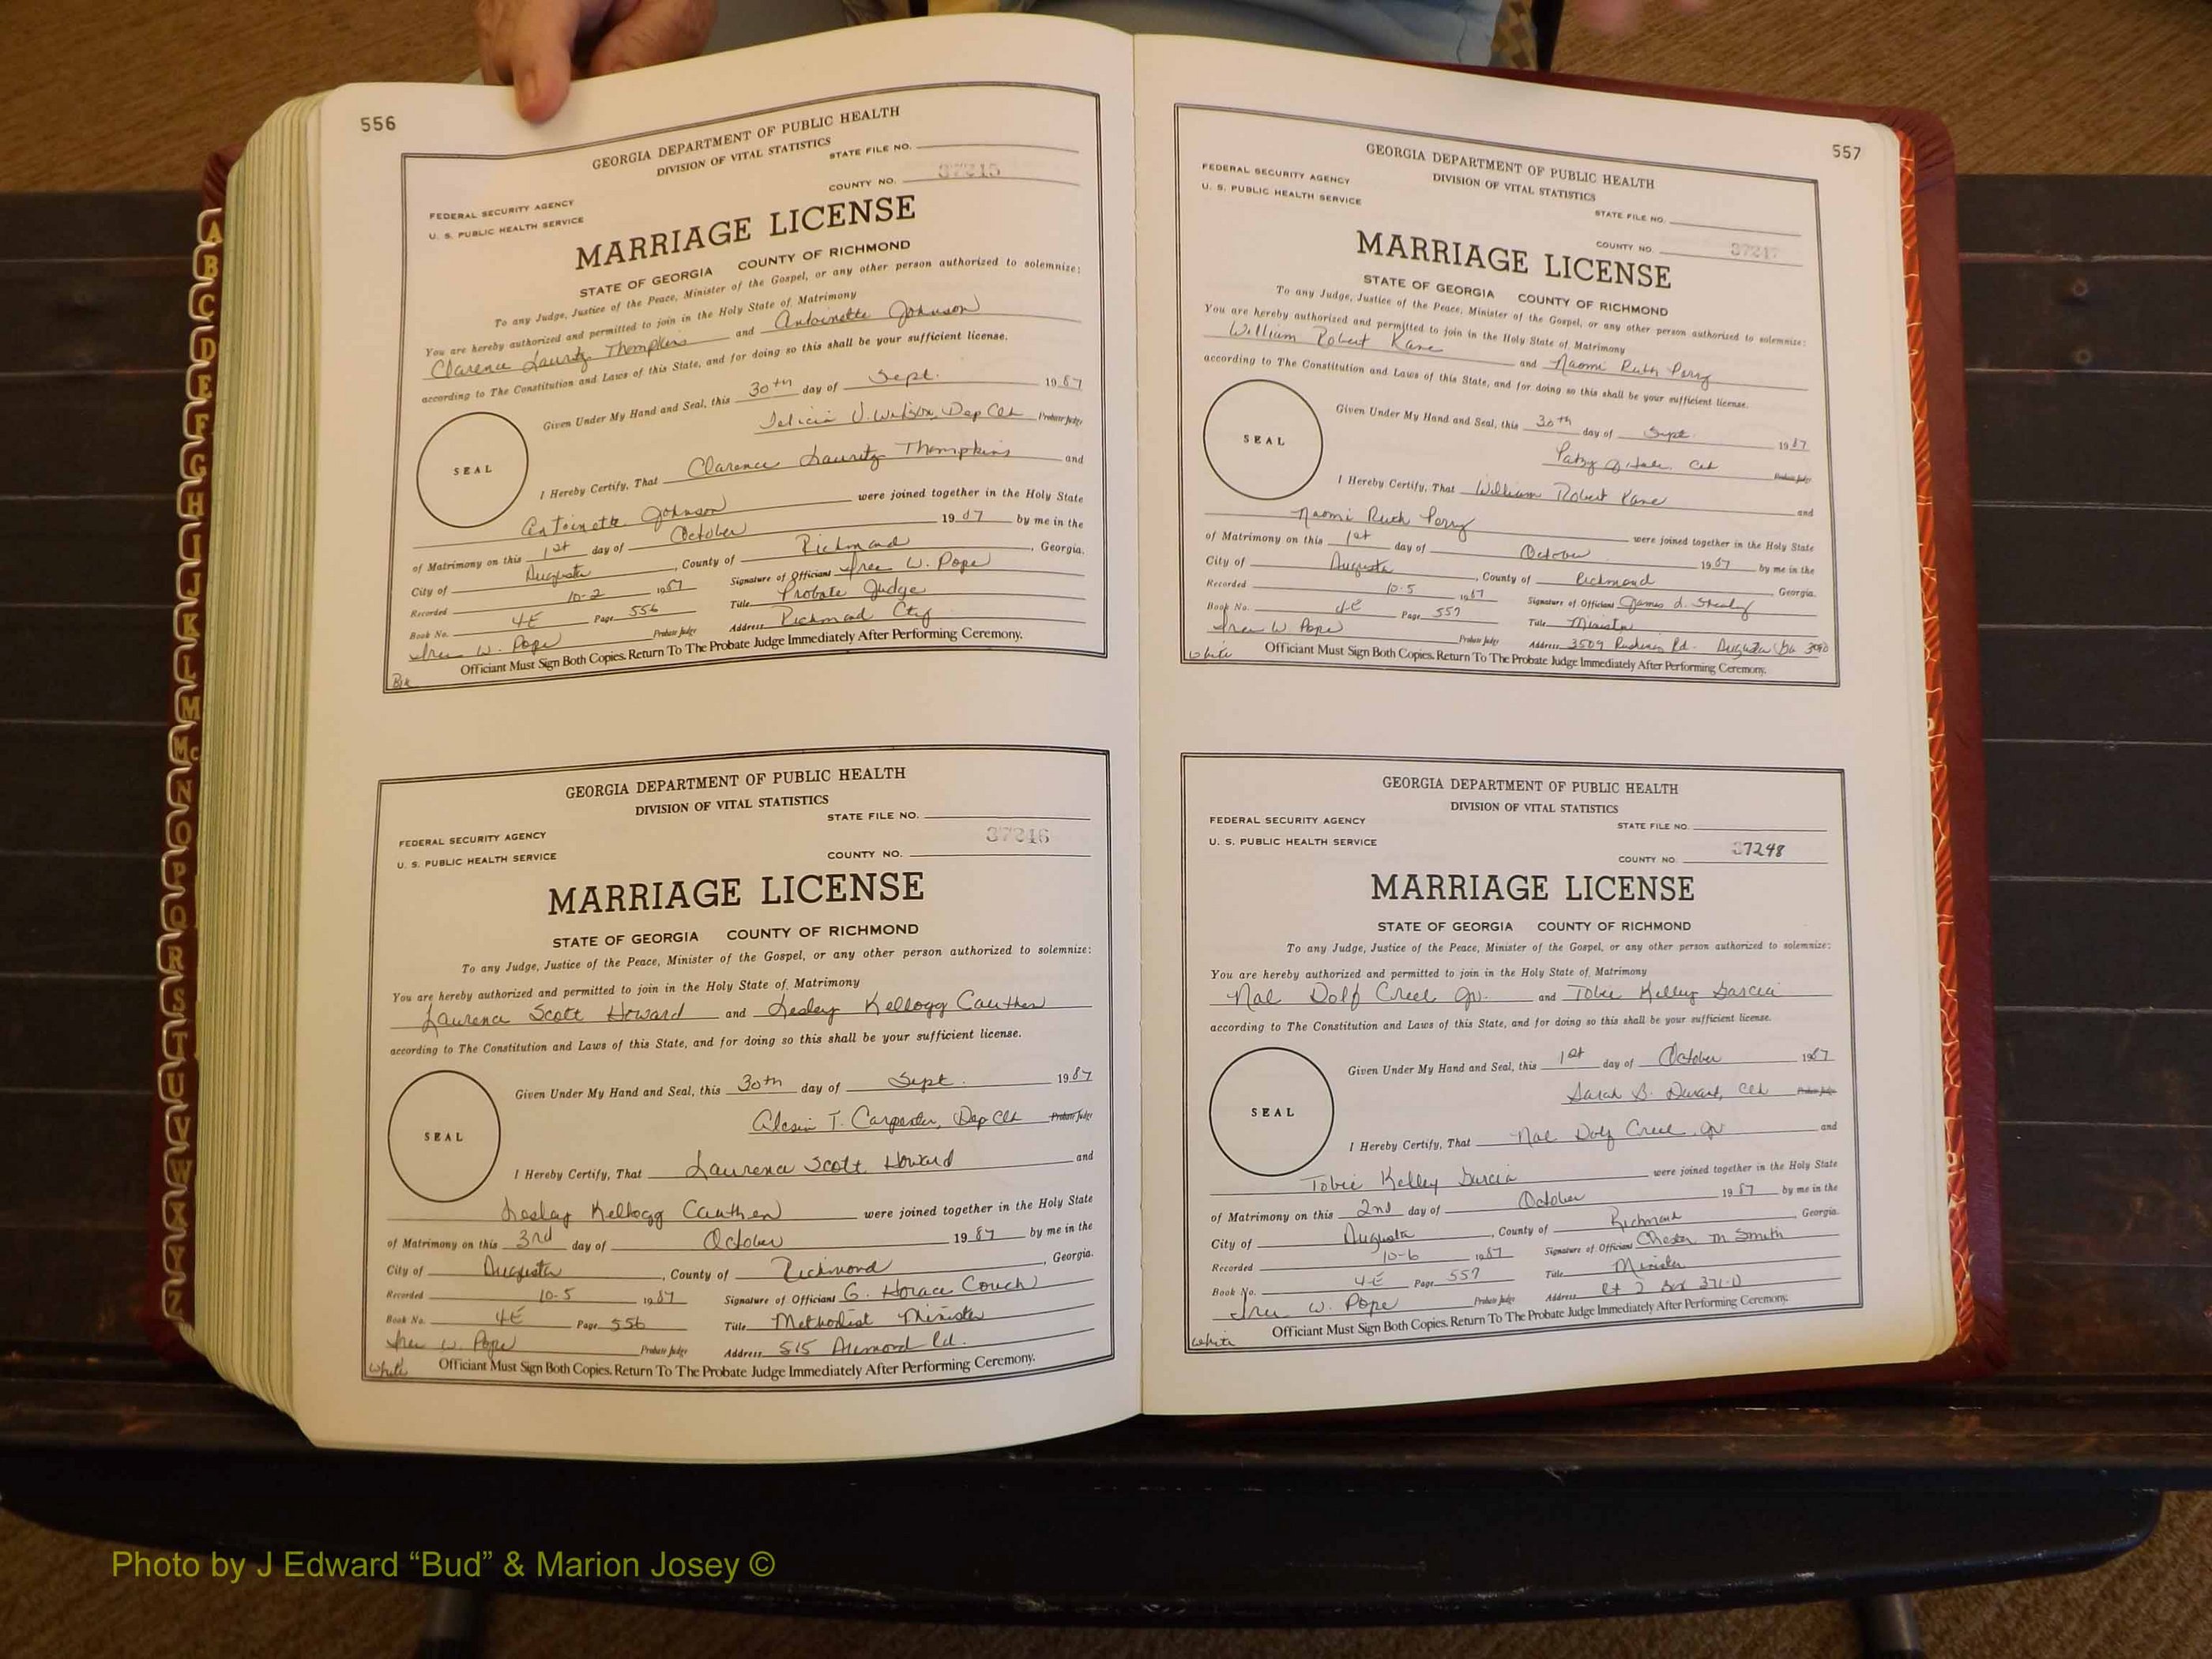 556
GEORGIA DEPARTMENT OF PUBLIC HEALTH
DIVISION OF VITAL STATISTICS
STATE FILE NO.
COUNTY NO. 37245
FEDERAL SECURITY AGENCY
U. S. PUBLIC HEALTH SERVICE
MARRIAGE LICENSE
STATE OF GEORGIA COUNTY OF RICHMOND
To any Judge, Justice of the Peace, Minister of the Gospel, or any other person authorized to solemnize:
You are hereby authorized and permitted to join in the Holy State of Matrimony
Clarence Lauritz Thompkins and Antoinette Johnson
according to The Constitution and Laws of this State, and for doing so this shall be your sufficient license.
Given Under My Hand and Seal, this 30th day of Sept. 1987
Felicia V. Wilson, Dep Clk Probate Judge
SEAL
I Hereby Certify, That Clarence Lauritz Thompkins and
Antoinette Johnson were joined together in the Holy State
of Matrimony on this 1st day of October 1987 by me in the
City of Augusta, County of Richmond, Georgia.
Recorded 10-2 1987 Signature of Officiant W. Pope
Book No. 4E Page 556 Title Probate Judge
W. Pope Probate Judge Address Richmond Cty
Officiant Must Sign Both Copies. Return To The Probate Judge Immediately After Performing Ceremony.
GEORGIA DEPARTMENT OF PUBLIC HEALTH
DIVISION OF VITAL STATISTICS
STATE FILE NO.
FEDERAL SECURITY AGENCY
U. S. PUBLIC HEALTH SERVICE
COUNTY NO. 37246
MARRIAGE LICENSE
STATE OF GEORGIA COUNTY OF RICHMOND
To any Judge, Justice of the Peace, Minister of the Gospel, or any other person authorized to solemnize:
You are hereby authorized and permitted to join in the Holy State of Matrimony
Laurence Scott Howard and Lesley Kellogg Cauthen
according to The Constitution and Laws of this State, and for doing so this shall be your sufficient license.
Given Under My Hand and Seal, this 30th day of Sept. 1987
T. Carpenter, Dep Clk Probate Judge
SEAL
I Hereby Certify, That Laurence Scott Howard and
Lesley Kellogg Cauthen were joined together in the Holy State
of Matrimony on this 3rd day of October 1987 by me in the
City of Augusta, County of Richmond, Georgia.
Recorded 10-5 1987 Signature of Officiant G. Horace Couch
Book No. 4E Page 556 Title Methodist Minister
W. Pope Probate Judge Address 515 Aumond Rd.
White Officiant Must Sign Both Copies. Return To The Probate Judge Immediately After Performing Ceremony.
557
GEORGIA DEPARTMENT OF PUBLIC HEALTH
DIVISION OF VITAL STATISTICS
FEDERAL SECURITY AGENCY
U. S. PUBLIC HEALTH SERVICE
STATE FILE NO.
COUNTY NO.
MARRIAGE LICENSE
STATE OF GEORGIA COUNTY OF RICHMOND
To any Judge, Justice of the Peace, Minister of the Gospel, or any other person authorized to solemnize:
You are hereby authorized and permitted to join in the Holy State of Matrimony
William Robert Kane and Naomi Ruth Perry
according to The Constitution and Laws of this State, and for doing so this shall be your sufficient license.
Given Under My Hand and Seal, this 30th day of Sept. 1987
Clk Probate Judge
SEAL
I Hereby Certify, That William Robert Kane and
Naomi Ruth Perry were joined together in the Holy State
of Matrimony on this 1st day of October 1987 by me in the
City of Augusta, County of Richmond Georgia.
Recorded 10-5 1987 Signature of Officiant James L.
Book No. 4E Page 557 Title Minister
W. Pope Probate Judge Address 3509 Rd. Augusta Ga
White Officiant Must Sign Both Copies. Return To The Probate Judge Immediately After Performing Ceremony.
GEORGIA DEPARTMENT OF PUBLIC HEALTH
DIVISION OF VITAL STATISTICS
FEDERAL SECURITY AGENCY
STATE FILE NO.
U. S. PUBLIC HEALTH SERVICE
COUNTY NO. 37248
MARRIAGE LICENSE
STATE OF GEORGIA COUNTY OF RICHMOND
To any Judge, Justice of the Peace, Minister of the Gospel, or any other person authorized to solemnize:
You are hereby authorized and permitted to join in the Holy State of Matrimony
Dolf Creel Jr. and Tobie Kelley Garcia
according to The Constitution and Laws of this State, and for doing so this shall be your sufficient license.
Given Under My Hand and Seal, this 1st day of October 1987
Sarah B. Clk Probate Judge
SEAL
I Hereby Certify, That Dolf Creel, Jr and
Tobie Kelley Garcia were joined together in the Holy State
of Matrimony on this 2nd day of October 1987 by me in the
City of Augusta, County of Richmond Georgia.
Recorded 10-6 1987 Signature of Officiant Chester M Smith
Book No. 4E Page 557 Title Minister
W. Pope Probate Judge Address Rt 2 Box 371-D
White Officiant Must Sign Both Copies. Return To The Probate Judge Immediately After Performing Ceremony.
A
B
C
D
E
F
G
H
I
J
K
L
M
Mc
N
O
P
Q
R
S
T
U
V
W
X
Y
Z
Photo by J Edward “Bud” & Marion Josey ©